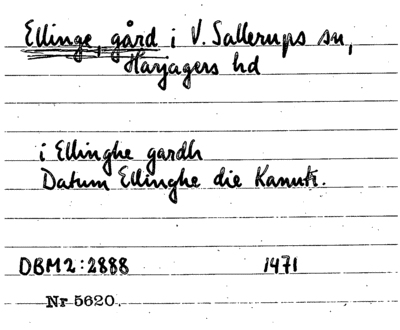 Ellinge, gård i V. Sallerups sn,
Harjagers hd
i Ellinghe gardh
Datum Ellinghe die Kanuti.
DBM2:2888 1471
Nr 5620.